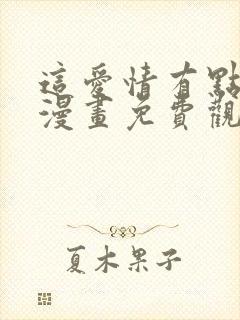 這愛情有點
漫畫免費觀
夏木果子